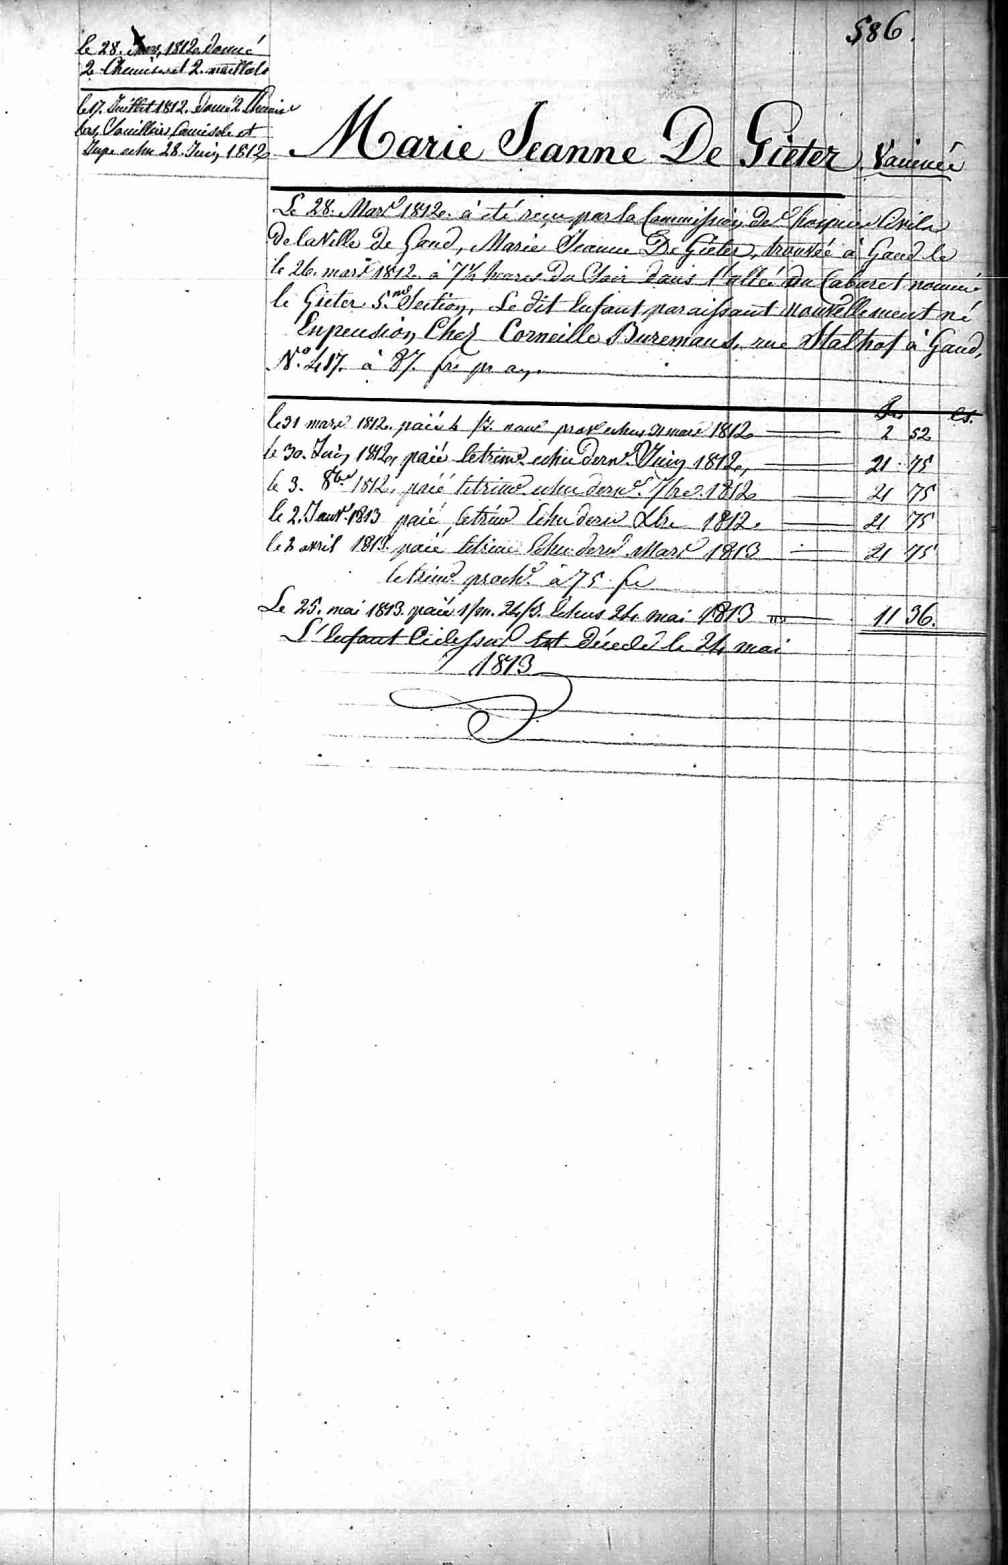 586.
le 28. 1812. donné
2 Chemises et 2
le 17. Juillet 1812. donné 2 Chemise
bas, Souilliers Camisole et
Jupe echu 28. Juin 1812
Marie Jeanne De Gieter. Vaccinée
Le 28. Mars 1812. à été reçue par la Commission des hospices Civils
de la Ville de Gand, Marie Jeanne De Gieter, trouvée à Gand le
le 26. mars 1812. à 7½ heures du Soir dans l'allée du Cabaret nommé
le Gieter 5.me Section, Le dit Enfant paraissant nouvellement né
En pension Chez Corneille Buremans, rue Stalhof à Gand,
N.o 417. à 87. frs pr an.
frs Cs.
le 31 mars 1812. paié echus 31 mars 1812 2 52
le 30. Juin 1812, paié le trime. echu dernr. Juin 1812, 21 75
le 3. 8bre 1812, paié le trime. echu dernr. 7bre. 1812 21 75
le 2. Janvr. 1813 paié le trime Echu dernr Xbre 1812. 21 75
le 2 avril 1813. paié le trime Echu dernr. Mars 1813 21 75
le trime. proche. à 75 fs
Le 25. mai 1813. paié 1/m. 24/j. Echus 24 mai 1813 11 36.
L'Enfant Cidessus est Décedé le 24 mai
1813